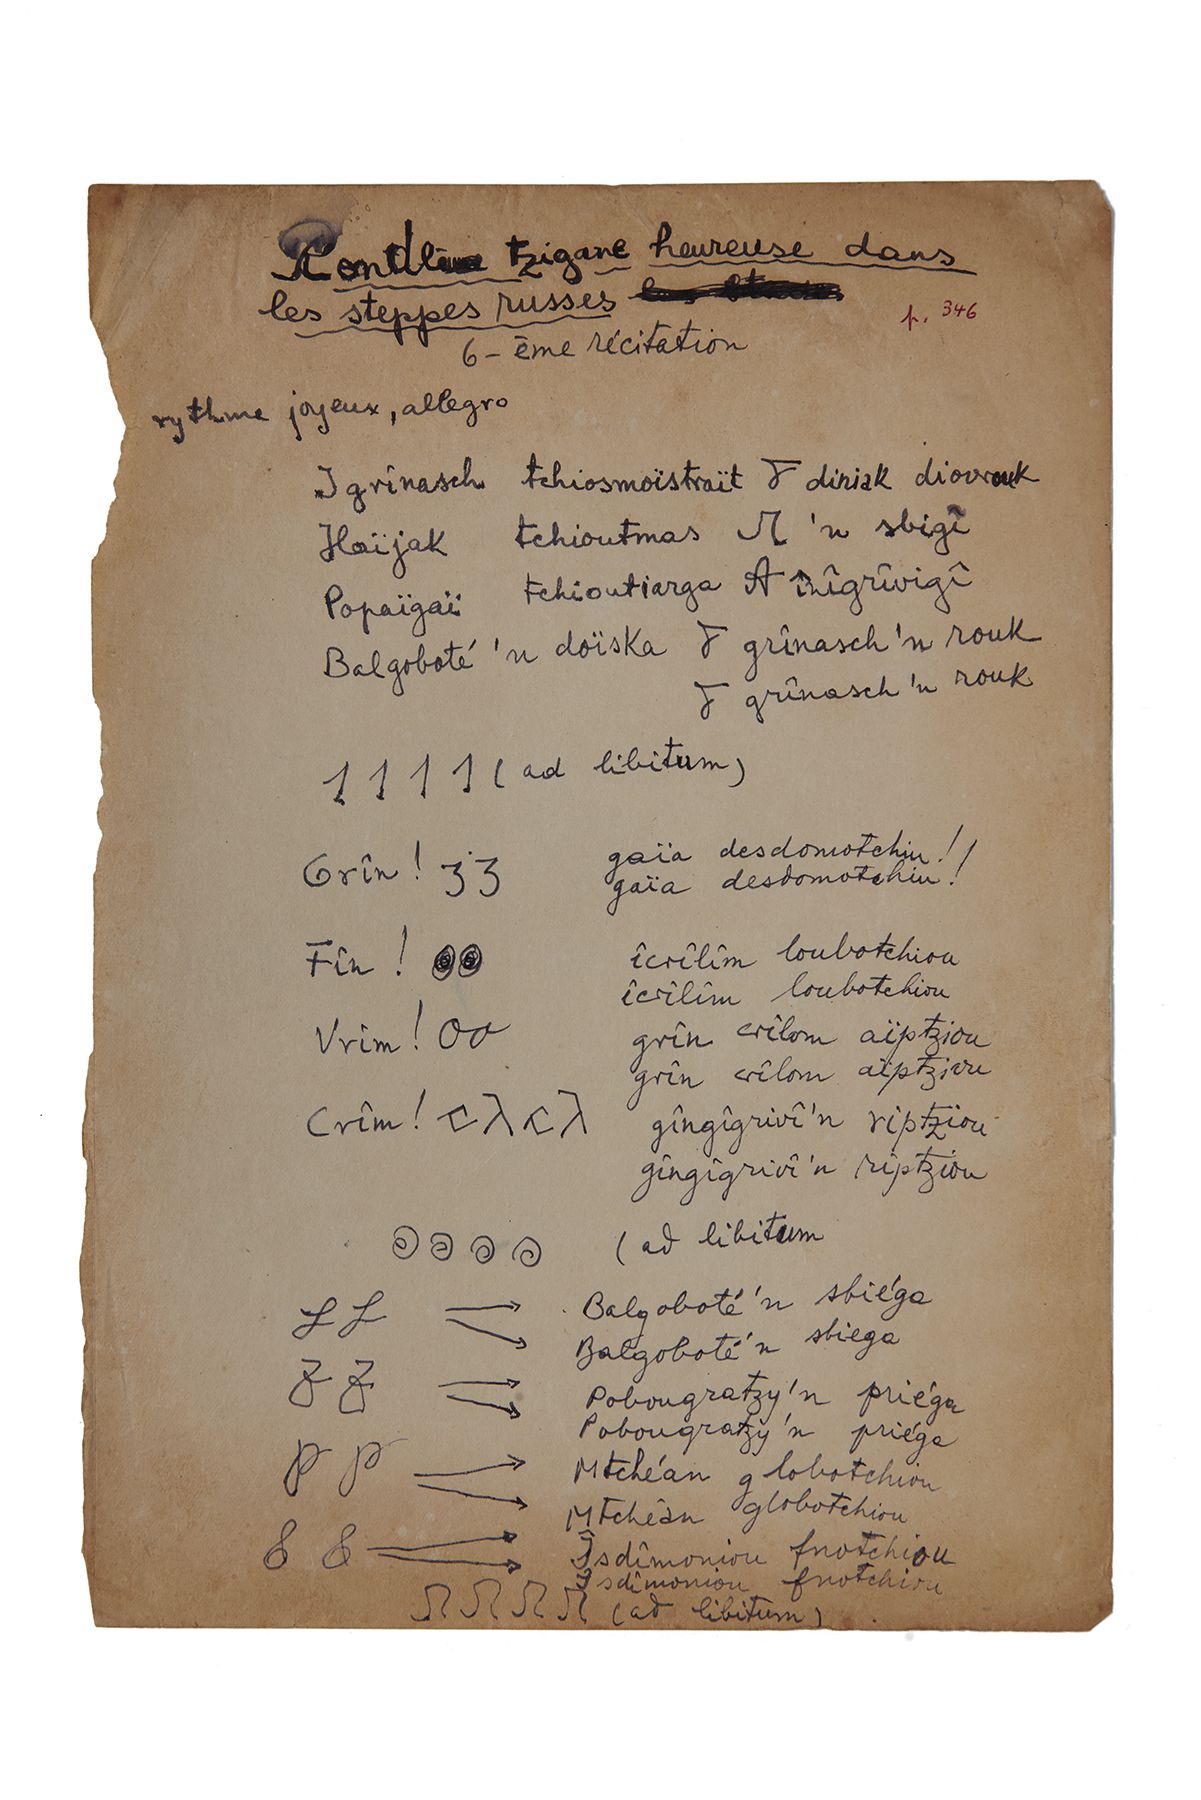 tzigane heureuse dans
les steppes russes
p. 346
6-ème récitation
rythme joyeux, allegro
Igrînasch tchiosmoïstraït diniak
Haïjak tchioutmas 'n sbigî
Popaïgaï tchioutiarga
Balgoboté 'n doïska grînasch 'n rouk
grînasch 'n rouk
(ad libitum)
Grîn! gaïa desdomotchiu!
gaïa desdomotchiu!
Fîn! îcrîlîm loubotchiou
îcrîlîm loubotchiou
Vrîm! grîn crîlom aïptziou
grîn crîlom aïptziou
Crîm! gîngîgrivî'n riptziou
gîngîgrivî'n riptziou
(ad libitum
Balgoboté'n sbiéga
Balgoboté'n sbiega
Pobougratzy'n priéga
Pobougratzy'n priéga
Mtchéan globotchiou
Mtchéan globotchiou
Îsdîmoniou fnotchiou
Îsdîmoniou fnotchiou
(ad libitum)